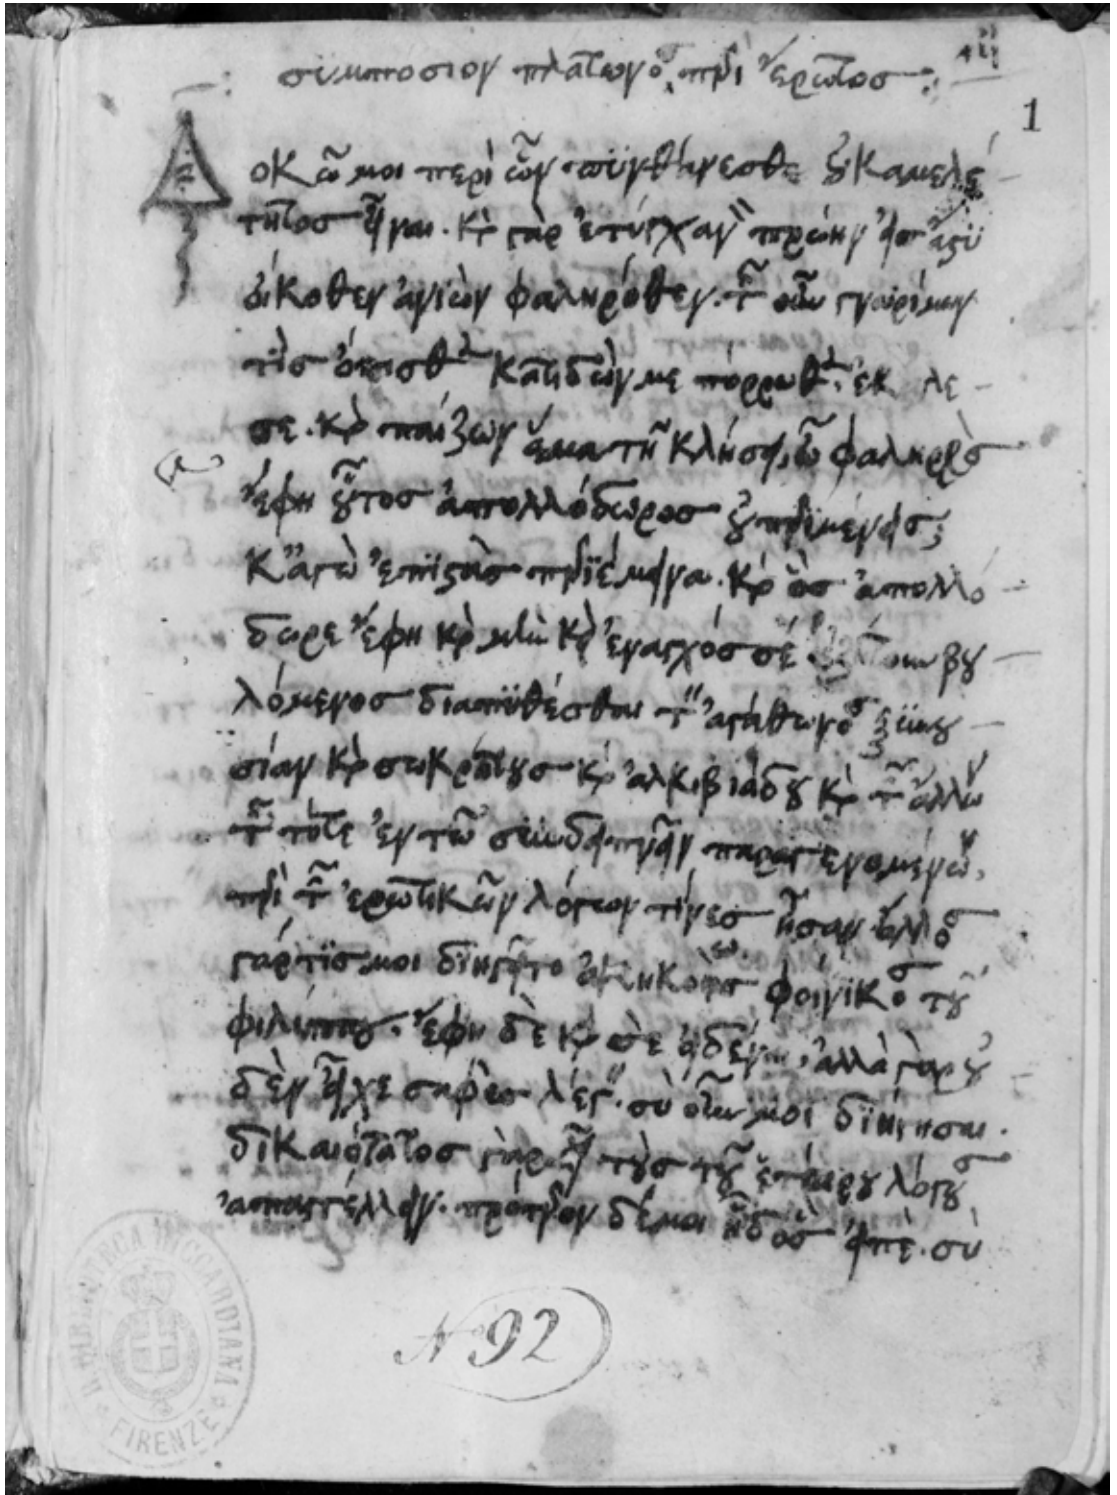 συμπόσιον πλάτωνος περὶ ἔρωτος
1
Δοκῶ μοι περὶ ὧν πυνθάνεσθε οὐκ ἀμελέ
τητος εἶναι. καὶ γὰρ ἐτύγχανον πρώην εἰς ἄστυ
οἴκοθεν ἀνιὼν φαληρόθεν. τῶν οὖν γνωρίμων
τὶς ὄπισθεν κατιδών με πόρρωθεν ἐκάλε
σε. καὶ παίζων ἅμα τῆ κλήσει, ὦ φαληρεὺς
ἔφη οὗτος ἀπολλόδωρος οὐ περιμένεις;
κἀγὼ ἐπιστὰς περιέμεινα. καὶ ὃς ἀπολλό
δωρε ἔφη καὶ μὴν καὶ ἔναγχός σε ἐζήτουν βου
λόμενος διαπυθέσθαι τὴν ἀγάθωνος ξυνου
σίαν καὶ σωκράτους καὶ ἀλκιβιάδου καὶ τῶν ἄλλων
τῶν τότε ἐν τῶ συνδειπνεῖν παραγενομένων,
περὶ τῶν ἐρωτικῶν λόγων τίνες ἦσαν. ἄλλος
γάρ τίς μοι διηγεῖτο ἀκηκοὼς φοίνικος τοῦ
φιλίππου. ἔφη δὲ καὶ σὲ εἰδέναι, ἀλλὰ γὰρ οὐ
δὲν εἶχε σαφὲς λέγειν. σὺ οὖν μοι διήγησαι.
δικαιότατος γὰρ εἶ τοὺς τοῦ ἑταίρου λόγους
ἀπαγγέλλειν. πρότερον δέ μοι ἦδ' ὃς εἰπὲ. σὺ
No 92
BIBLIOTECA RICCARDIANA
FIRENZE